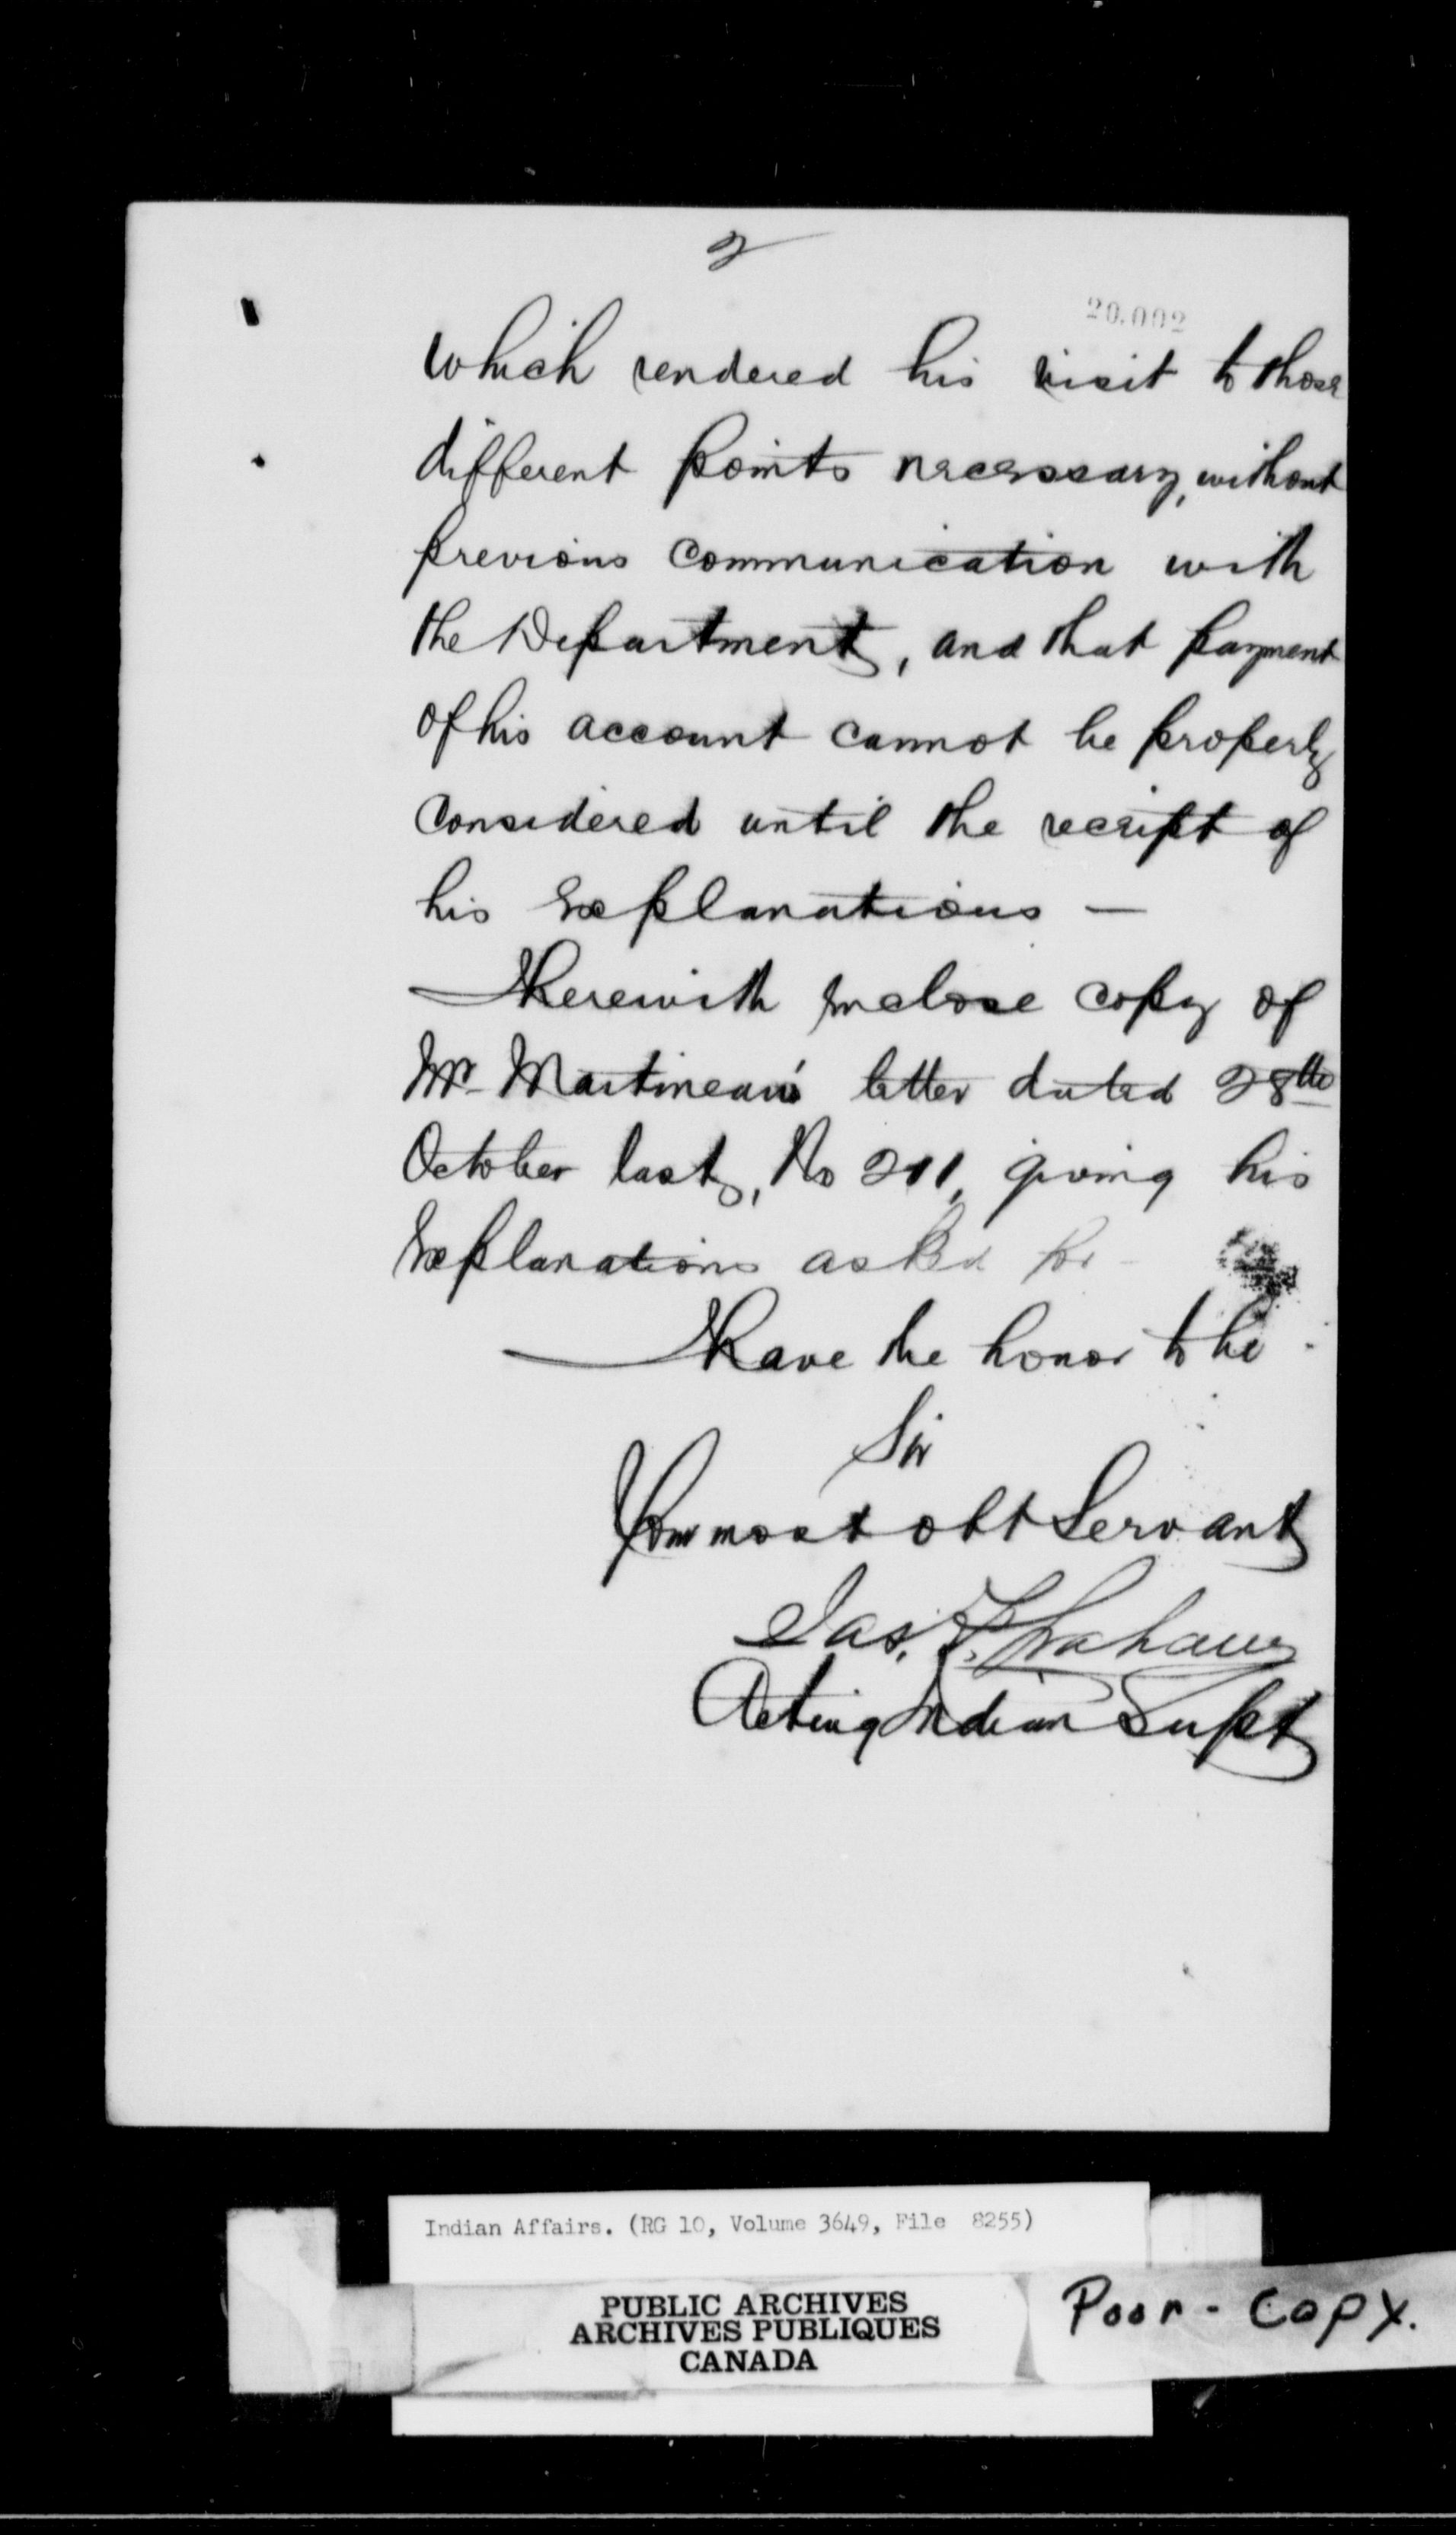 2
20,002
which rendered his visit to those
different points necessary, without
previous communication with
the Department, and that payment
of his account cannot be properly
considered until the receipt of
his explanations —
I herewith inclose copy of
Mr Martineau's letter dated 28th
October last, No 211, giving his
explanations asked for -
I have the honor to be
Sir
Your most obt Servant
Jas. F. Graham
Acting Indian Supt
Indian Affairs. (RG 10, Volume 3649, File 8255)
PUBLIC ARCHIVES
ARCHIVES PUBLIQUES
CANADA
Poor - Copy.